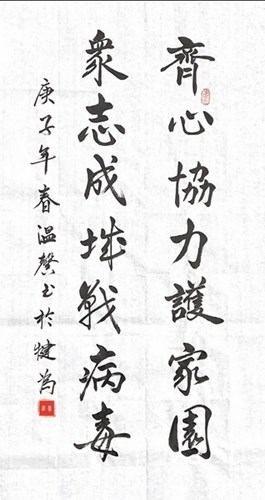 齊心協力護家園
衆志成城戰病毒
庚子年春溫馨书於犍為